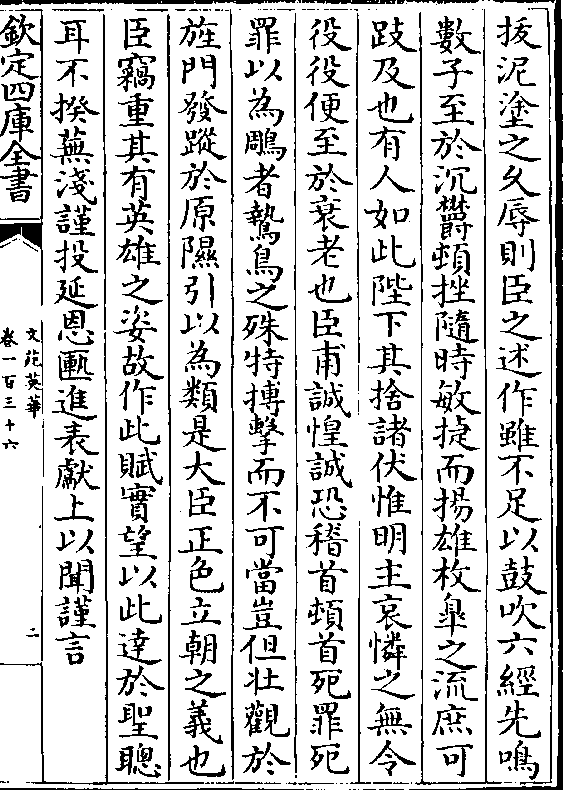 拔泥塗之久辱則臣之述作雖不足以鼓吹六經先鳴
數子至於沉鬱頓挫隨時敏捷而揚雄枚臯之流庶可
跂及也有人如此陛下其捨諸伏惟明主哀憐之無令
役役便至於衰老也臣甫誠惶誠恐稽首頓首死罪死
罪以為鵰者鷙鳥之殊特搏擊而不可當豈但壯觀於
旌門發蹤於原隰引以為類是大臣正色立朝之義也
臣竊重其有英雄之姿故作此賦實望以此達於聖聰
耳不揆蕪淺謹投延恩匭進表獻上以聞謹言
欽定四庫全書
文苑英華
卷一百三十六
二